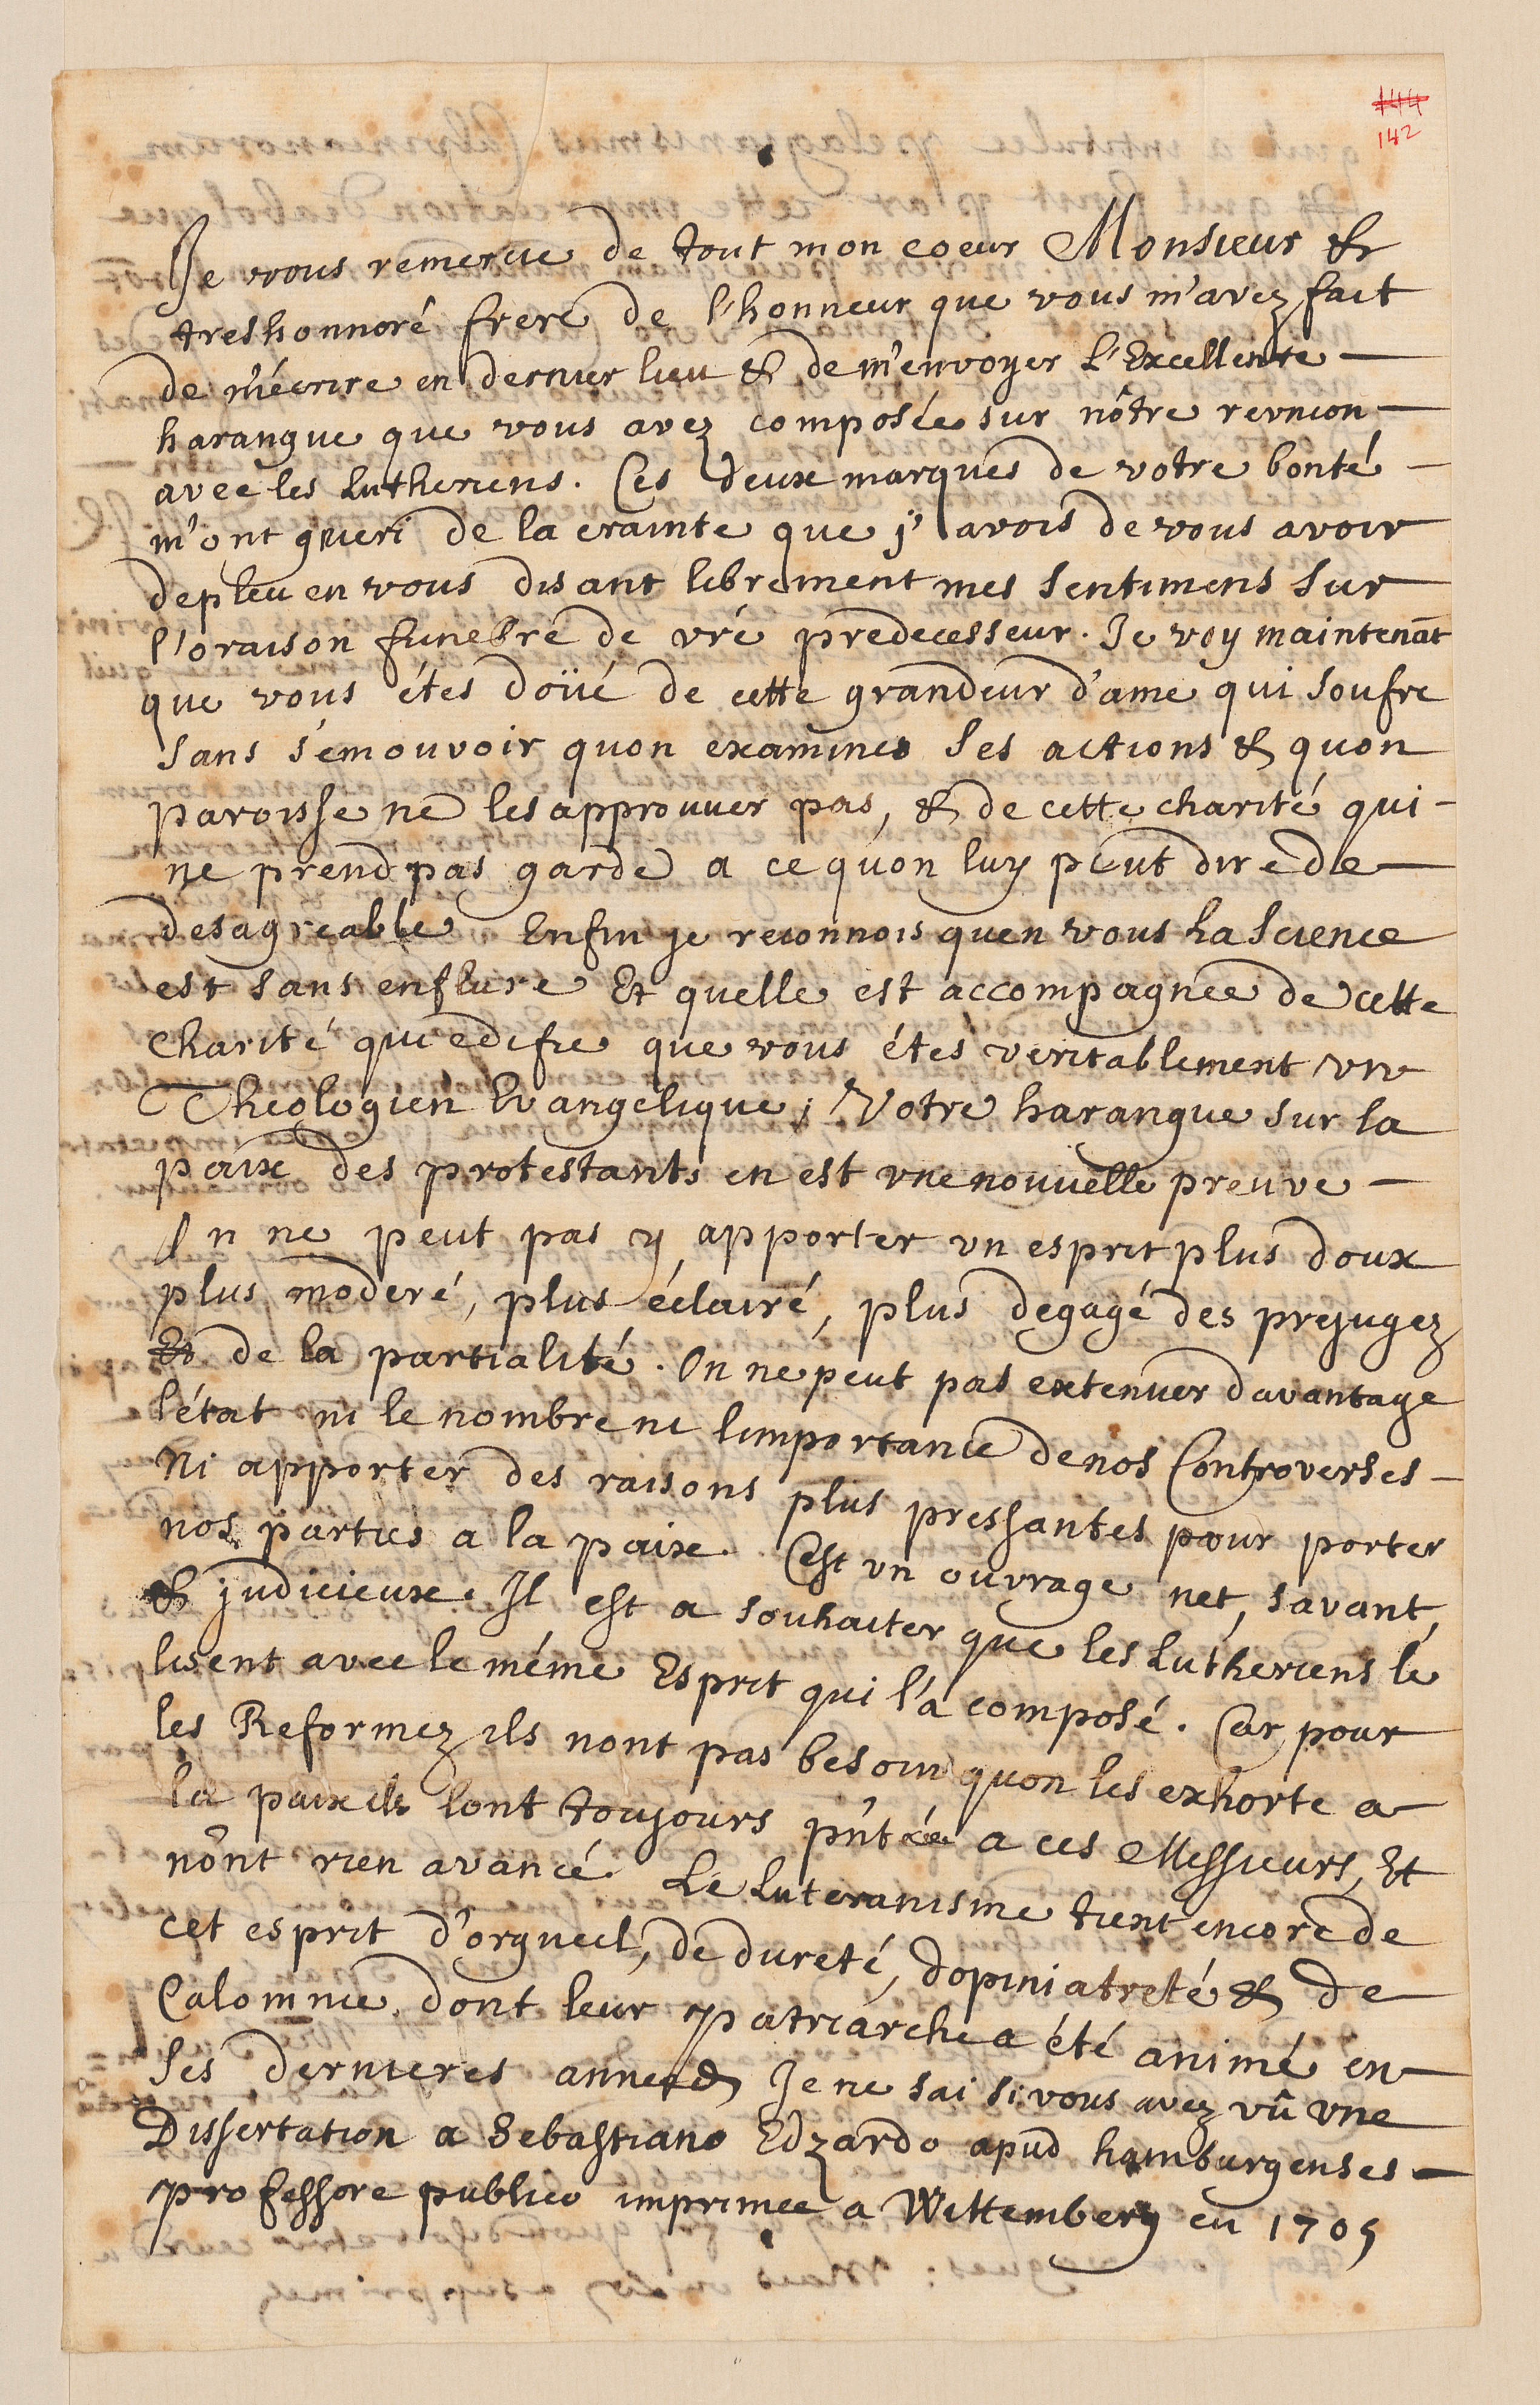 144
142
Je vous remercie de tout mon coeur Monsieur &
treshonnoré frere de l'honneur que vous m'avez fait
de m'écrire en dernier lieu & de m'envoyer l'Excellente
harangue que vous avez composée sur nôtre reunion
avec les Lutheriens. Ces deux marques de votre bonté
m'ont gueri de la crainte que j'avois de vous avoir
depleu en vous disant librement mes sentimens sur
l'oraison funebre de vré predecesseur. Je voy maintenāt
que vous étes doüé de cette grandeur d'ame qui soufre
sans s'emouvoir quon examine ses actions & quon
paroisse ne les approuver pas, & de cette charité qui
ne prend pas garde a ce qu'on luy peut dire de
desagreable Enfin je reconnois quen vous la science
est sans enflure Et quelle est accompagnée de cette
charité qui edifie que vous étes veritablement vn
Theologien Evangelique; Votre harangue sur la
paix des protestants en est vne nouvelle preuve
On ne peut pas y apporter vn esprit plus doux
plus moderé, plus éclairé, plus degagé des prejugez
Et de la partialité. On ne peut pas extenuer davantage
l'état ni le nombre ni limportance de nos Controverses
Ni apporter des raisons plus pressantes pour porter
nos parties a la paix. Cest vn ouvrage net, savant,
& judicieux. Il est a souhaiter que les Lutheriens le
lisent avec le méme Esprit qui l'a composé. Car pour
les Reformez ils nont pas besoin quon les exhorte a
la paix ils lont toujours p̂ntée a ces Messieurs, Et
nônt rien avancé. Le Luteranisme tient encore de
cet esprit d'orgueil, de dureté, dopiniatreté & de
Calomnie dont leur patriarche a été animé en
ses dernieres années Je ne sai si vous avez vû vne
Dissertation a Sebastiano Edzardo apud hamburgenses
professore publico imprimée a Wittemberg en 1705